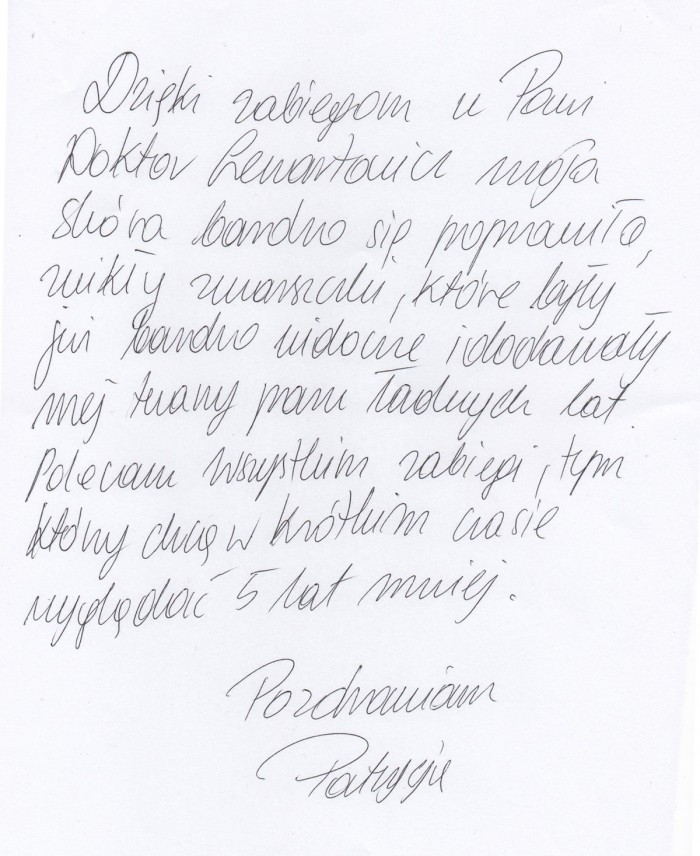 Dzięki zabiegom u Pani
Doktor Lewartowicz moja
skóra bardzo się poprawiła,
znikły zmarszczki, które były
już bardzo widoczne i dodawały
mej twarzy parę ładnych lat.
Polecam wszystkim zabiegi, tym
którzy chcą w krótkim czasie
wyglądać 5 lat mniej.
Pozdrawiam
Patrycja